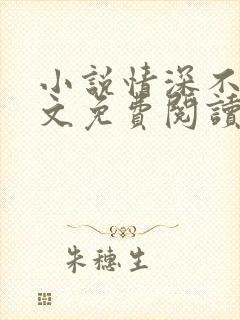 小説情深不
文免費閱讀
朱穗生